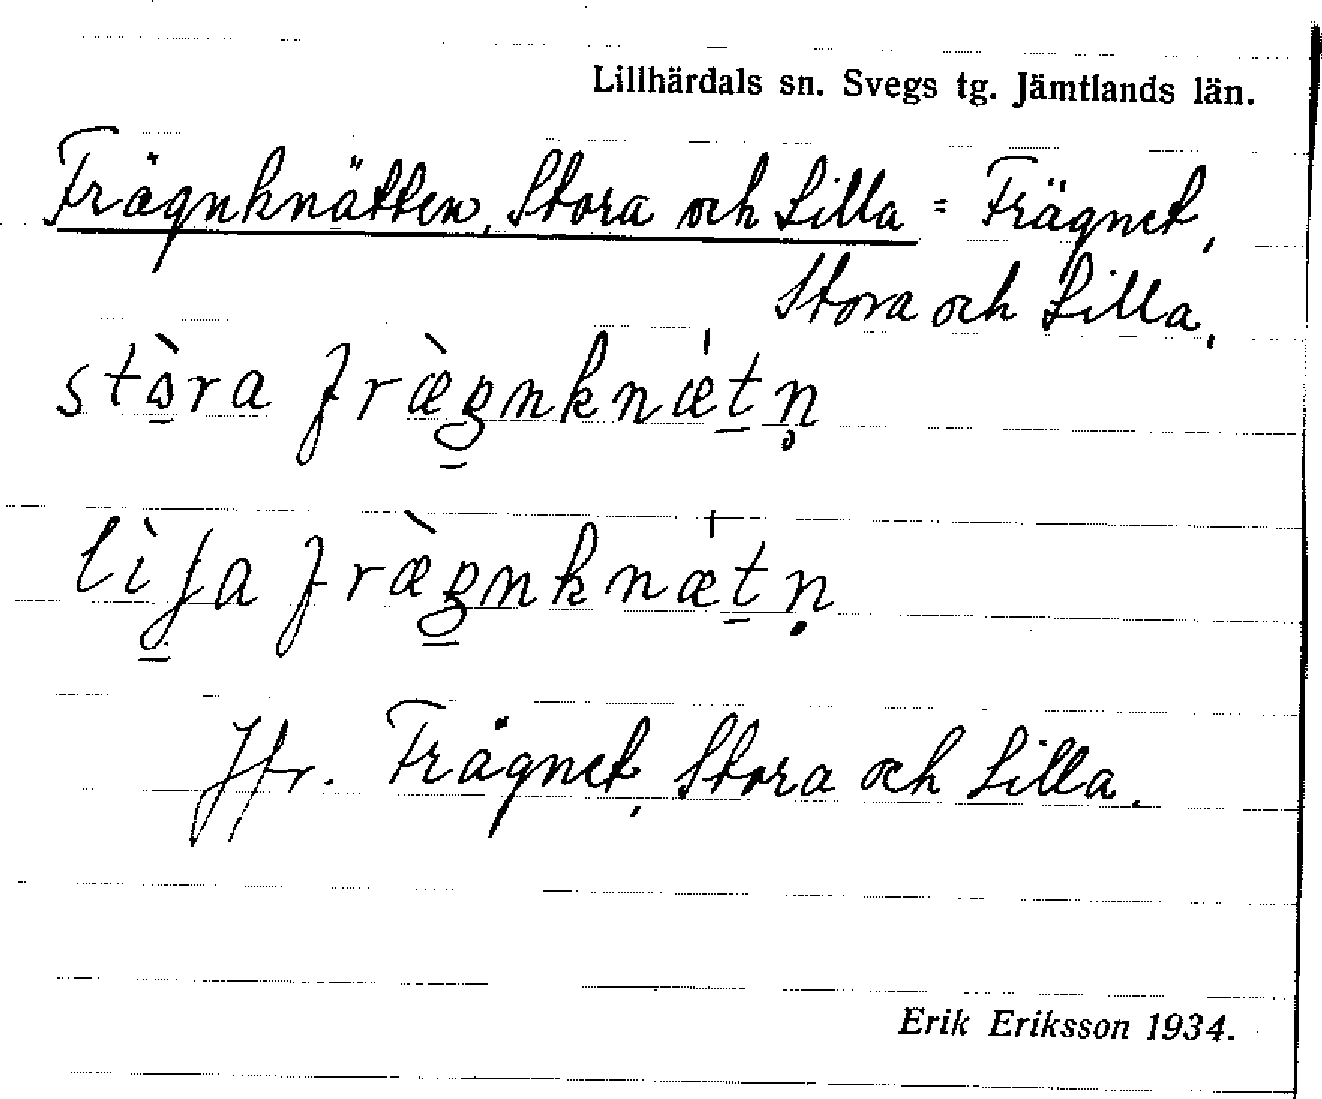 Lillhärdals sn. Svegs tg. Jämtlands län.
Frägnknätten, Stora och Lilla = Frägnet,
Stora och Lilla,
stòra fræ̀gnknæ̍tn̥
lìʃa fræ̀gnknæ̍tṇ
Jfr. Frägnet, Stora och Lilla.
Erik Eriksson 1934.